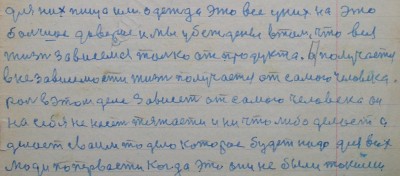 для них пища или одежда это все у них на это
большое доверие и мы убеждены в том, что вся
жизн зависемся толко от продукта. получается
в независемости жизн получается от самого человека.
рол в этом деле зависет от самого человека он
на себя не несет тяжести и ни что либо делает а
делает своим то дело которое будет надо для всех
люди потеряюсти когда это они не были такими